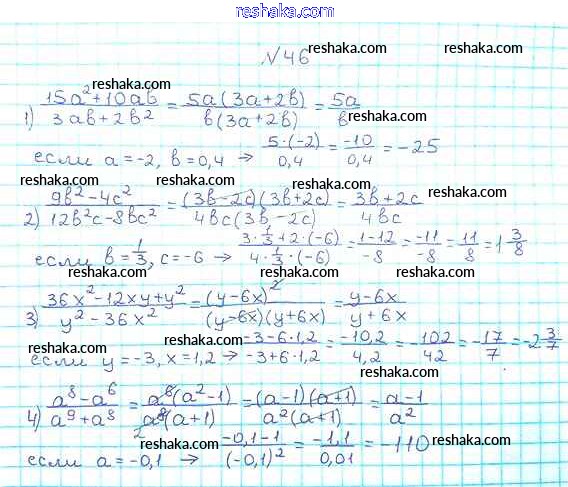 reshaka.com
№ 46 reshaka.com
reshaka.com reshaka.com reshaka.com
1) (15a²+10ab)/(3ab+2b²) = (5a(3a+2b))/(b(3a+2b)) = 5a/b reshaka.com
если a=-2, b=0,4 → (5·(-2))/0,4 = -10/0,4 = -25
reshaka.com reshaka.com reshaka.com
2) (9b²-4c²)/(12b²c-8bc²) = ((3b-2c)(3b+2c))/(4bc(3b-2c)) = (3b+2c)/(4bc) reshaka.com
если b=1/3, c=-6 → (3·1/3+2·(-6))/(4·1/3·(-6)) = (1-12)/-8 = -11/-8 = 11/8 = 1 3/8
reshaka.com reshaka.com reshaka.com
3) (36x²-12xy+y²)/(y²-36x²) = (y-6x)²/((y-6x)(y+6x)) = (y-6x)/(y+6x) reshaka.com
если y=-3, x=1,2 → (-3-6·1,2)/(-3+6·1,2) = -10,2/4,2 = -102/42 = -17/7 = -2 3/7
reshaka.com reshaka.com reshaka.com
4) (a⁸-a⁶)/(a⁹+a⁸) = (a⁶(a²-1))/(a⁸(a+1)) = ((a-1)(a+1))/(a²(a+1)) = (a-1)/a²
reshaka.com reshaka.com
если a=-0,1 → (-0,1-1)/(-0,1)² = -1,1/0,01 = -110
reshaka.com reshaka.com reshaka.com